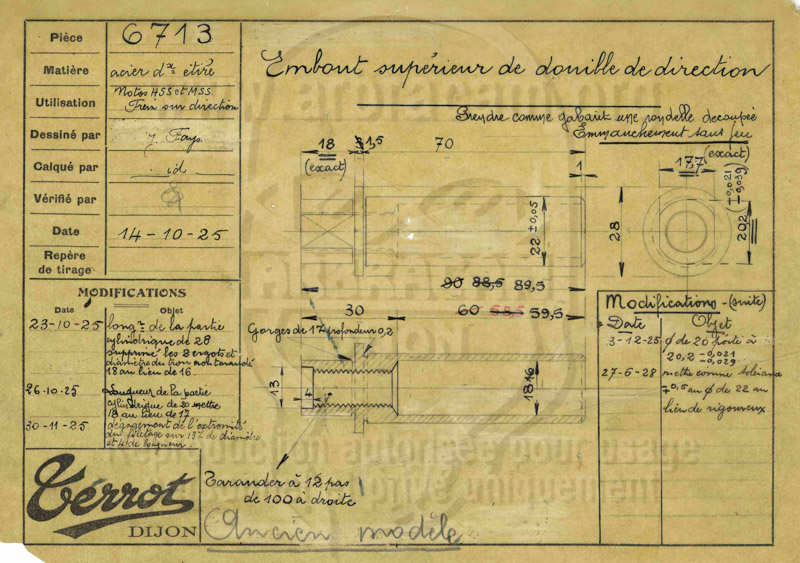 Pièce 6713
Matière acier dx étiré
Utilisation Motos HSS et MSS.
Frein sur direction
Dessiné par J. Fays.
Calqué par id
Vérifié par
Date 14-10-25
Repère
de tirage
Embout supérieur de douille de direction
Prendre comme gabarit une rondelle découpée
Emmanchement sans jeu
18 (exact)
1,5
70
1
17,7 (exact)
22 ± 0,05
28
20,2 (-0,021 -0,039)
90 88,5 89,5
30
60 58,5 59,5
Gorges de 17 profondeur 0,2
13
4
18
16
Tarauder à 12 pas
de 100 à droite
Ancien modèle
MODIFICATIONS
Date Objet
23-10-25 long. de la partie
cylindrique de 28
supprimé les 2 ergots et
diamètre du trou non taraudé
18 au lieu de 16.
26-10-25 Longueur de la partie
cylindrique de 30 mettre
18 au lieu de 17
30-11-25 dégagement de l'extrémité
du filetage sur 13 de diamètre
et 4 de longueur
Modifications - (suite)
Date Objet
3-12-25 ϕ de 20 porté à
20,2 -0,021
-0,029
27-6-28 mettre comme tolérance
±0,5 au ϕ de 22 au
lieu de rigoureux
Terrot
DIJON
autorisée pour usage
privé uniquement